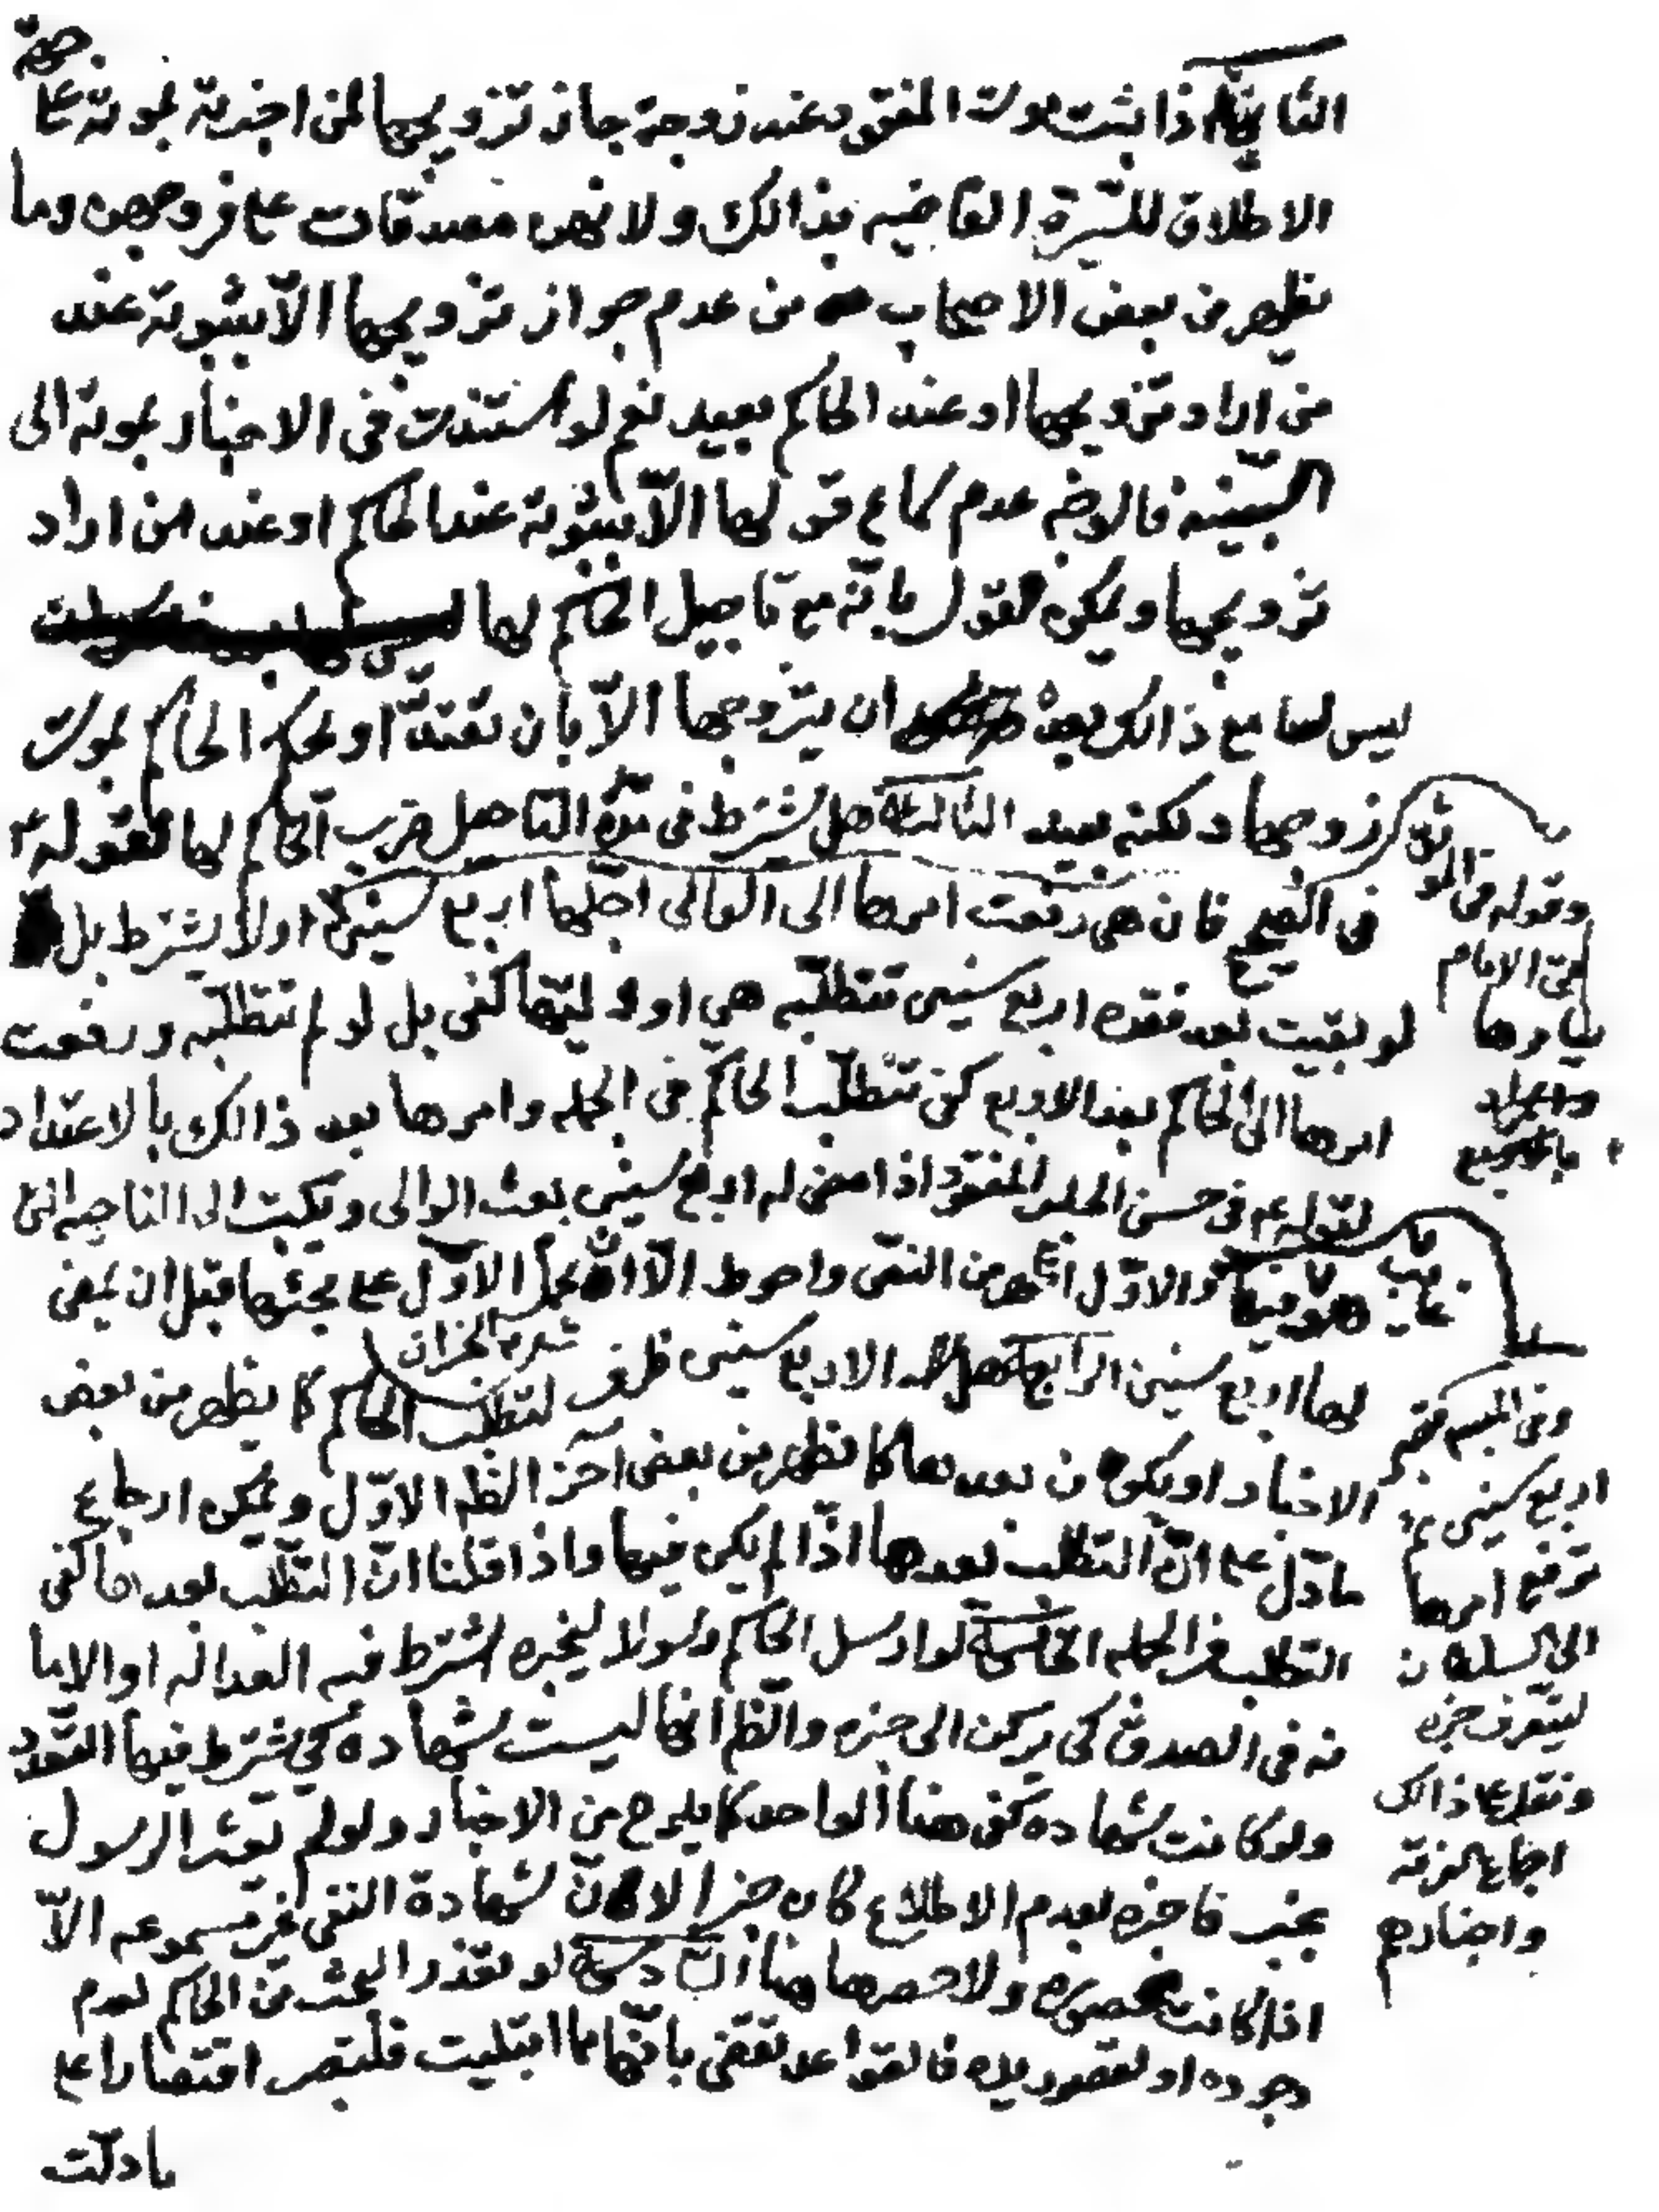 صحة
الثانية اذا ثبت موت المفقود عند زوجة جاز تزويجها لمن اخبرته بموته على
الاطلاق للسيرة القاضيه بذالك ولانهن مصدقات على فروجهن وما
يظهر من بعض الاصحاب من عدم جواز تزويجها الّا بثبوته عند
من اراد تزويجها او عند الحاكم بعيد نعم لو استندت في الاخبار بموته الى
البيّنه فالوجه عدم سماع قولها الّا بثبوته عند الحاكم او عند من اراد
تزويجها ويمكن القول بانّه مع تاجيل الحاكم لها
ليس لها مع ذالك ان يتزوجها الّا بان تعتدّ او يحكم الحاكم بموت
زوجها ولكنه بعيد الثالثة هل يشترط في مدة التاجيل ضرب الحاكم لها لقوله ع
في الصحيح فان هي رفعت امرها الى الوالى اجّلها اربع سنين او لا يشترط بل
لو بقيت بعد فقده اربع سنين تتطلّبه هي او وليّها كفى بل لو لم تتطلّبه ورفعت
امرها الى الحاكم بعد الاربع كفى تتطلّب الحاكم في الجمله وامرها بعد ذالك بالاعتداد
لقوله ع في حسن الحلبي المفقود اذا مضى له اربع سنين بعث الوالى ويكتب الى الناحيه التى
هو غايب فيها والاوّل اظهر من النص واحوط الّا ان يحمل الاوّل على مجيئها قبل ان يمضى
لها اربع سنين الرابعة هل الاربع سنين ظرف لتطلّب الحاكم كما يظهر من بعض
الاخبار او يكون بعدها كما يظهر من بعض آخر الظ الاوّل ويمكن ارجاع
ما دلّ على انّ التطلب بعدها اذا لم يكن فيها واذا قلنا انّ التطّلب بعدها كفى
التطلب في الجمله الخامسة لو ارسل الحاكم رسولا ليخبره اشترط فيه العداله او الايما
نه في الصدق كى يركن الى خبره والظ انها ليست شهاده كي يشترط فيها التعدد
ولو كانت شهاده كفى هنا الواحد كما يلوح من الاخبار ولو لم يعثر الرسول
بخبر فاخبره بعدم الاطلاع كان خبرا لان شهادة النفى غير مسموعه الّا
اذا كانت محصوره ولا حصرها هنا السادسة لو تعذر البحث من الحاكم لعدم
وجوده او لقصور يده فالقواعد تقضى بانّها مما ابتليت فلتصبر اقتصارا على
ما دلّت
وقوله في الموثق
على الامام
يامرها
وفي المسالك فقد
اربع سنين ثم
ترفع امرها
الى السلطان
ليتعرف خبره
ونقل على ذالك
اجماع الفرقه
واخبارهم